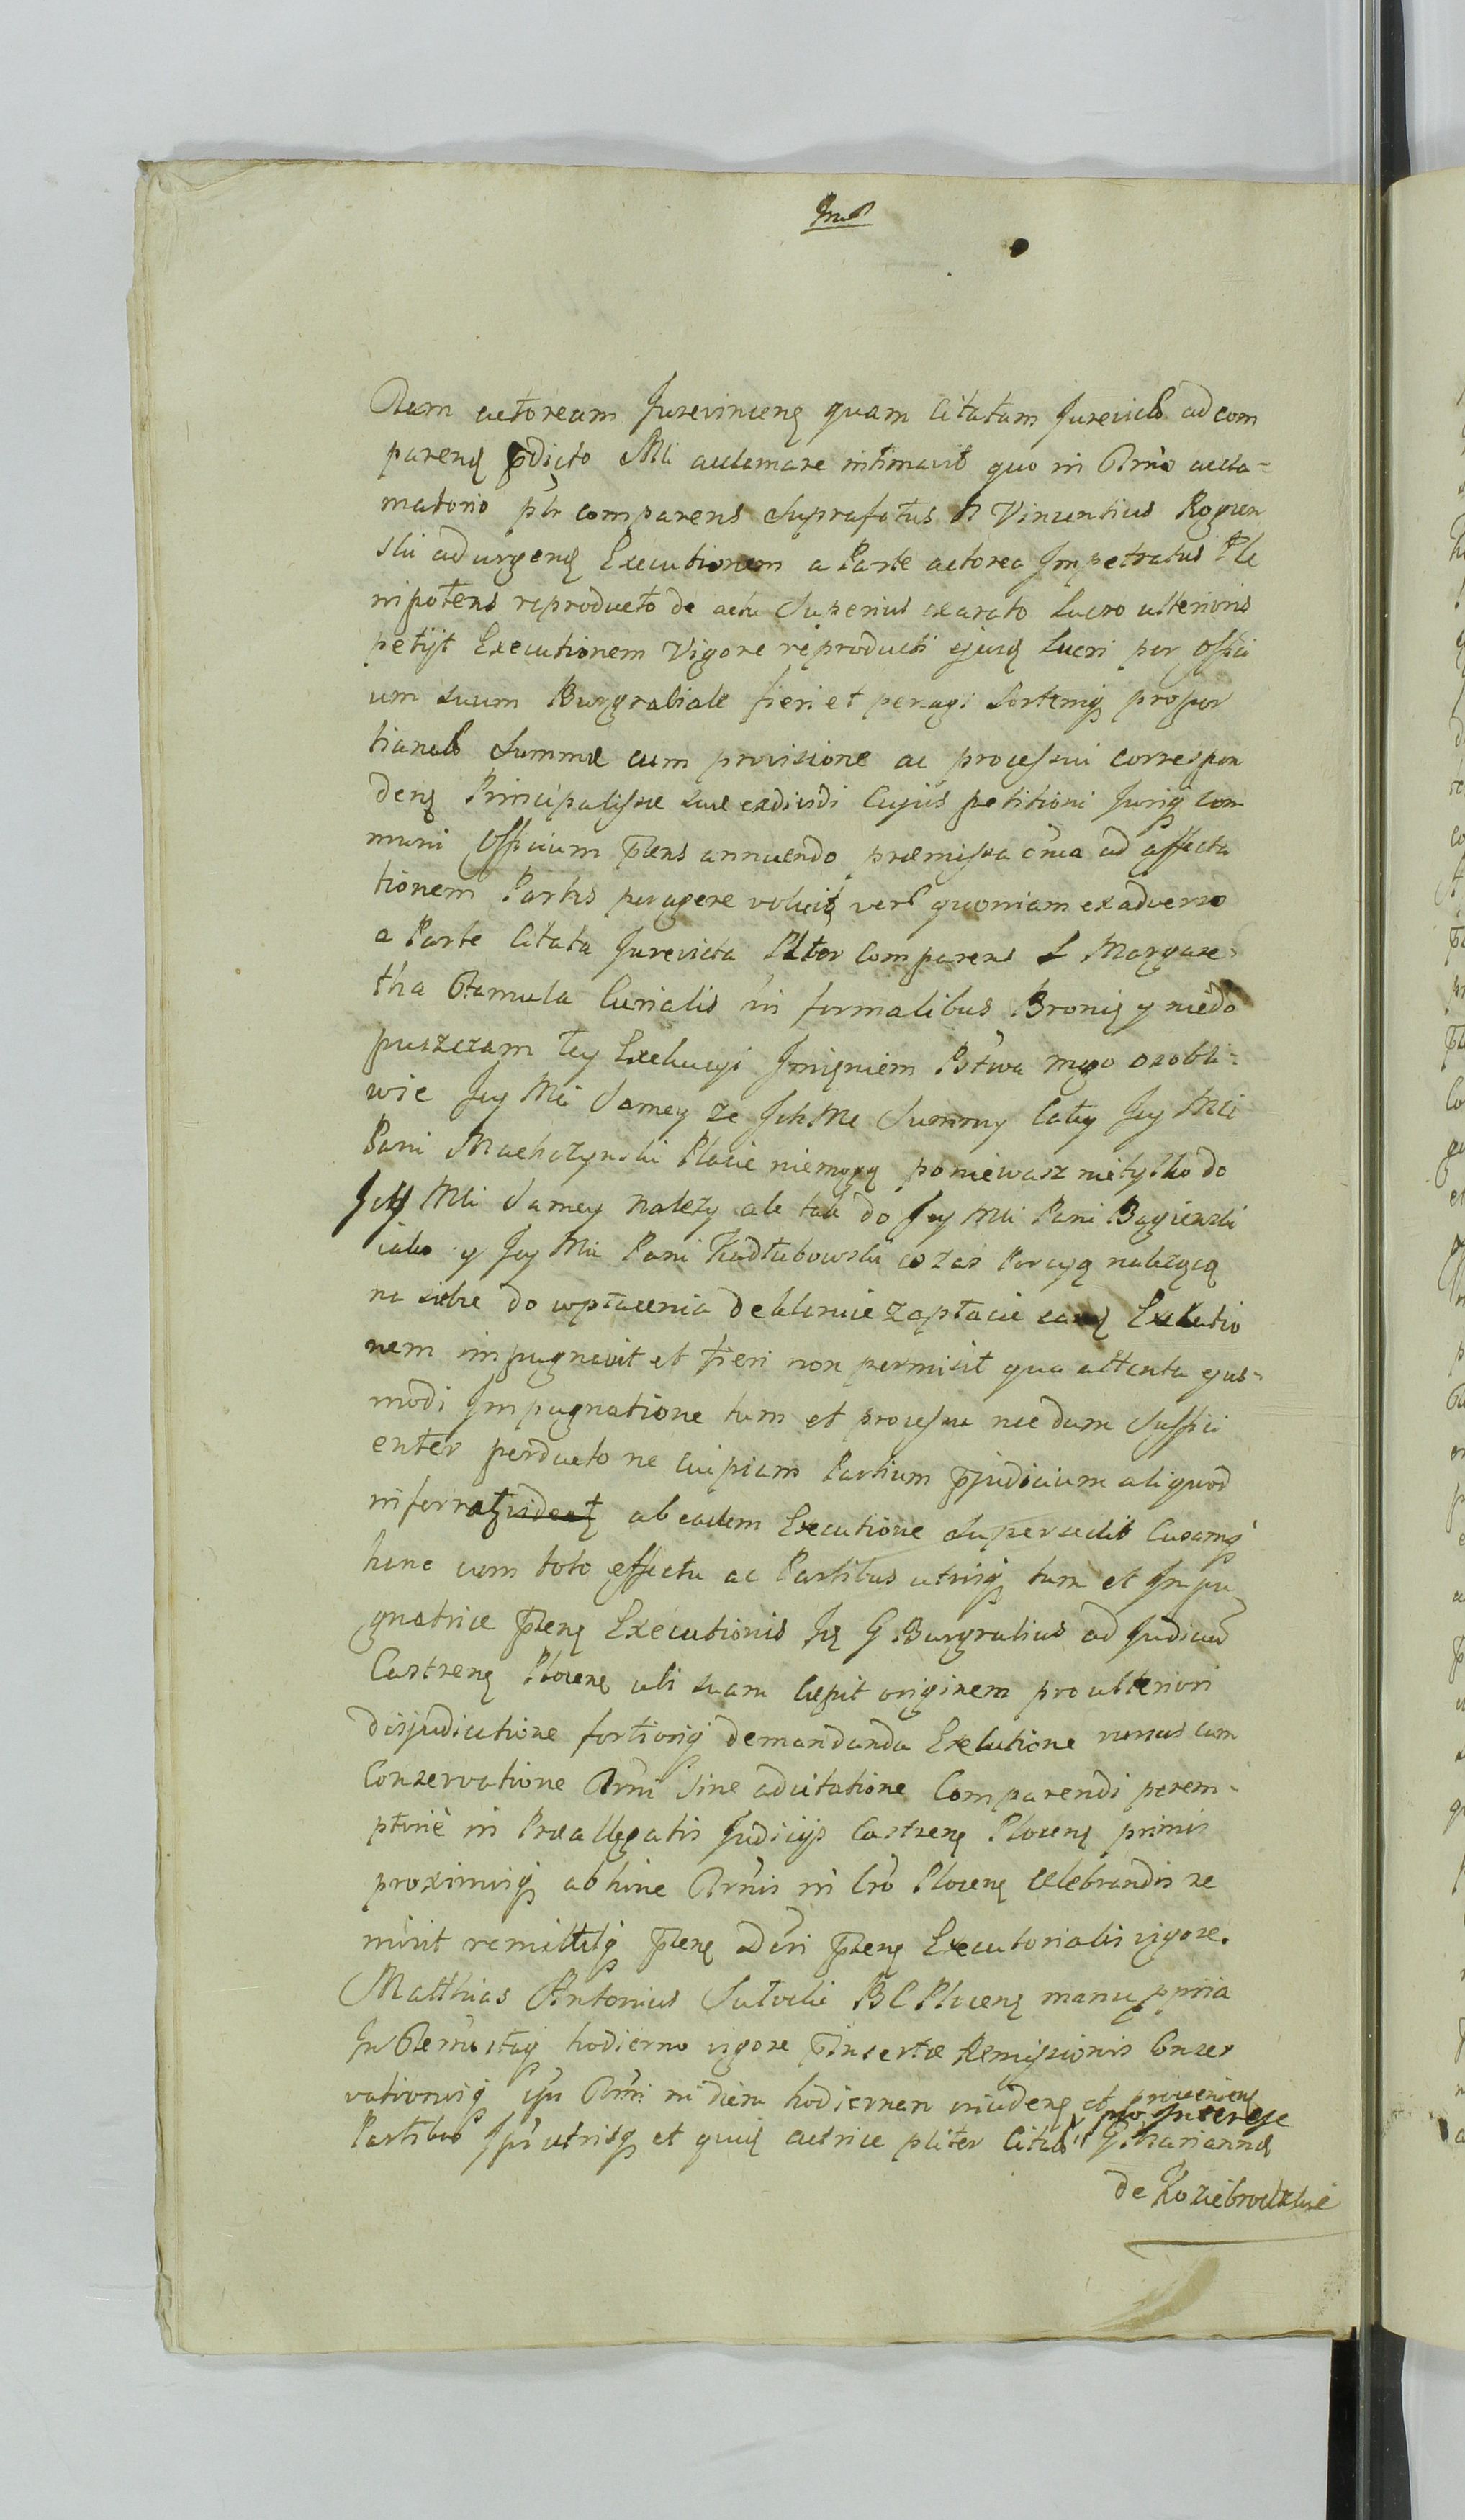 tam actoream Jurevincens quam Citatam Jurevictã ad com
parens pdicto Mli acclamare intimavit quo in Trno accla=
matorio pltr comparens Suprafatus N Vincentius Rogien
ski adurgens Executionem a Parte actorea Impetratus Ple
nipotens reproducto de actu Superius exarato Lucro ulterioris
petijt Executionem Vigore reproducti ejusd Lucri per Offici
um suum Burgrabiale fieri et peragi Sortemq propor
tionatã Summæ cum provisione ac processui correspon
dens Principalissæ suæ exdividi Cujus petitioni Jurisq com
muni Officium pñs annuendo præmissa oĩa ad affecta
tionem Partis peragere voluit verũ quoniam ex adverso
a Parte Citata Jurevicta Plter Comparens L Margare=
tha Famula Curialis in formalibus Bronię y niedo
puszczam tey Exekucyi Imięniem Pstwa mgo osobli=
wie Jey Mci Samey ze Ich Mc Summy Całey Jey Mci
Pani Machczynski Płacic niemogą poniewasz nietylko do
Jey Mci Samey należy ale tak do Jey Mci Pani Bagienski
iako y Jey Mci Pani Kadłubowski co zas Porcyą należącą
na siebie do wpłacenia deklaruie zapłacic eand Executio
nem impugnavit et fieri non permisit qua attenta ejus=
modi Impugnatione tum et processu nec dum Suffici
enter perducto ne cuipiam Partium pjudicium aliquod
inferrat ab eadem Executione Supersedit Causamq
hanc cum toto effectu ac Partibus utrisq tum et Impu
gnatrice pñs Executionis Id G Burgrabius ad Judiciũ
Castrens Plocens ubi suam Cepit originem pro ulteriori
disjudicatione fortiorisq demandanda Executione rursus cum
Conservatione Trni Sine adcitatione Comparendi perem=
ptorie in Præallegatis Judicijs Castrens Plocens primis
proximisq abhinc Trnis in Cro Plocens celebrandis re
misit remittitq pñs Dcri pñs Executorialis vigore.
Matthias Antonius Sutocki B C Plocens manu ppria
In Termo itaq hodierno vigore pinsertæ Remissionis Conser
vationisq ipsi Trni in diem hodiernam incidens et proveniens
Partibus Ipis utrisq et quid actrice pliter Citatã pro Interesse
G Mariannæ
de Koziebrodzkie